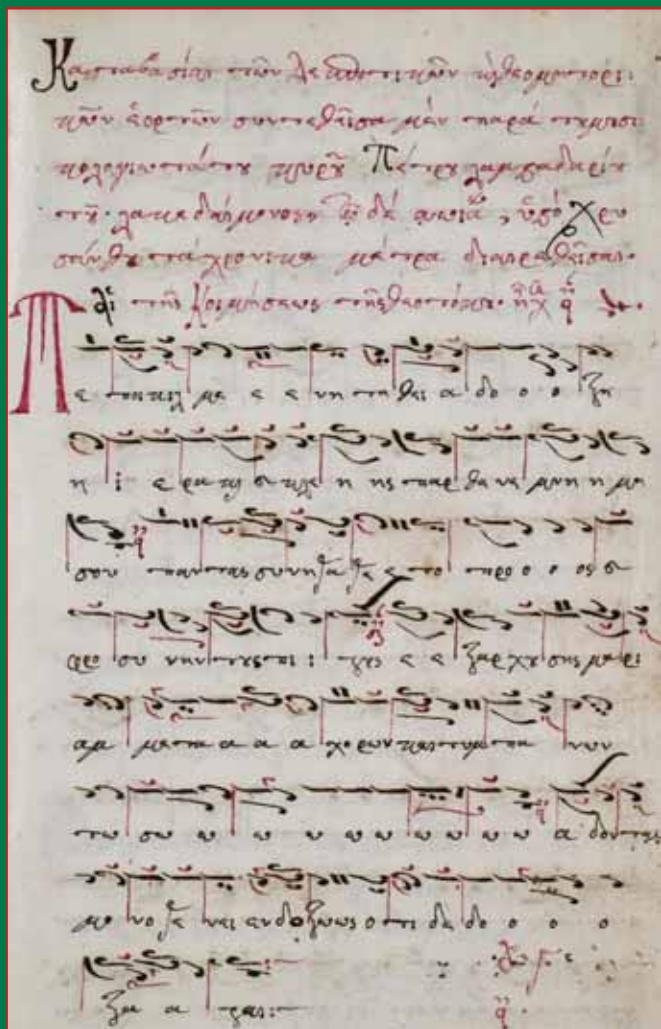 Καταβασίαι τῶν δεσποτικῶν καὶ θεομητορι
κῶν ἑορτῶν συντεθεῖσαι μὲν παρὰ τοῦ μουσι
κολογιωτάτου κυροῦ Πέτρου λαμπαδαρίου
τοῦ λακεδαίμονος δὲ ὑπὸ χρυ
σάνθου τὰ χρονικὰ μέτρα διαιρεθεῖσαι.
τῆς Κοιμήσεως τῆς θεοτόκου. ἦχ
Π ε ποικιλ με ε ε νη τη θει α δο ο ο ξη
η ι ε ρα και ευ κλε η ης παρ θε νε μνη η μη
σου παντας συνηγα γε ε το προ ο ο ος ευ
φρο συ νην τους πι ι στους ε ε ξαρ χου σης μα ρι
αμ με τα α α α χορων και τυμ πα νων
τω σω ω ω ω ω ω ω ω ω α δοντας
μο νο γε νει ενδοξως ο τι δε δο ο ο ο
ξα α σται